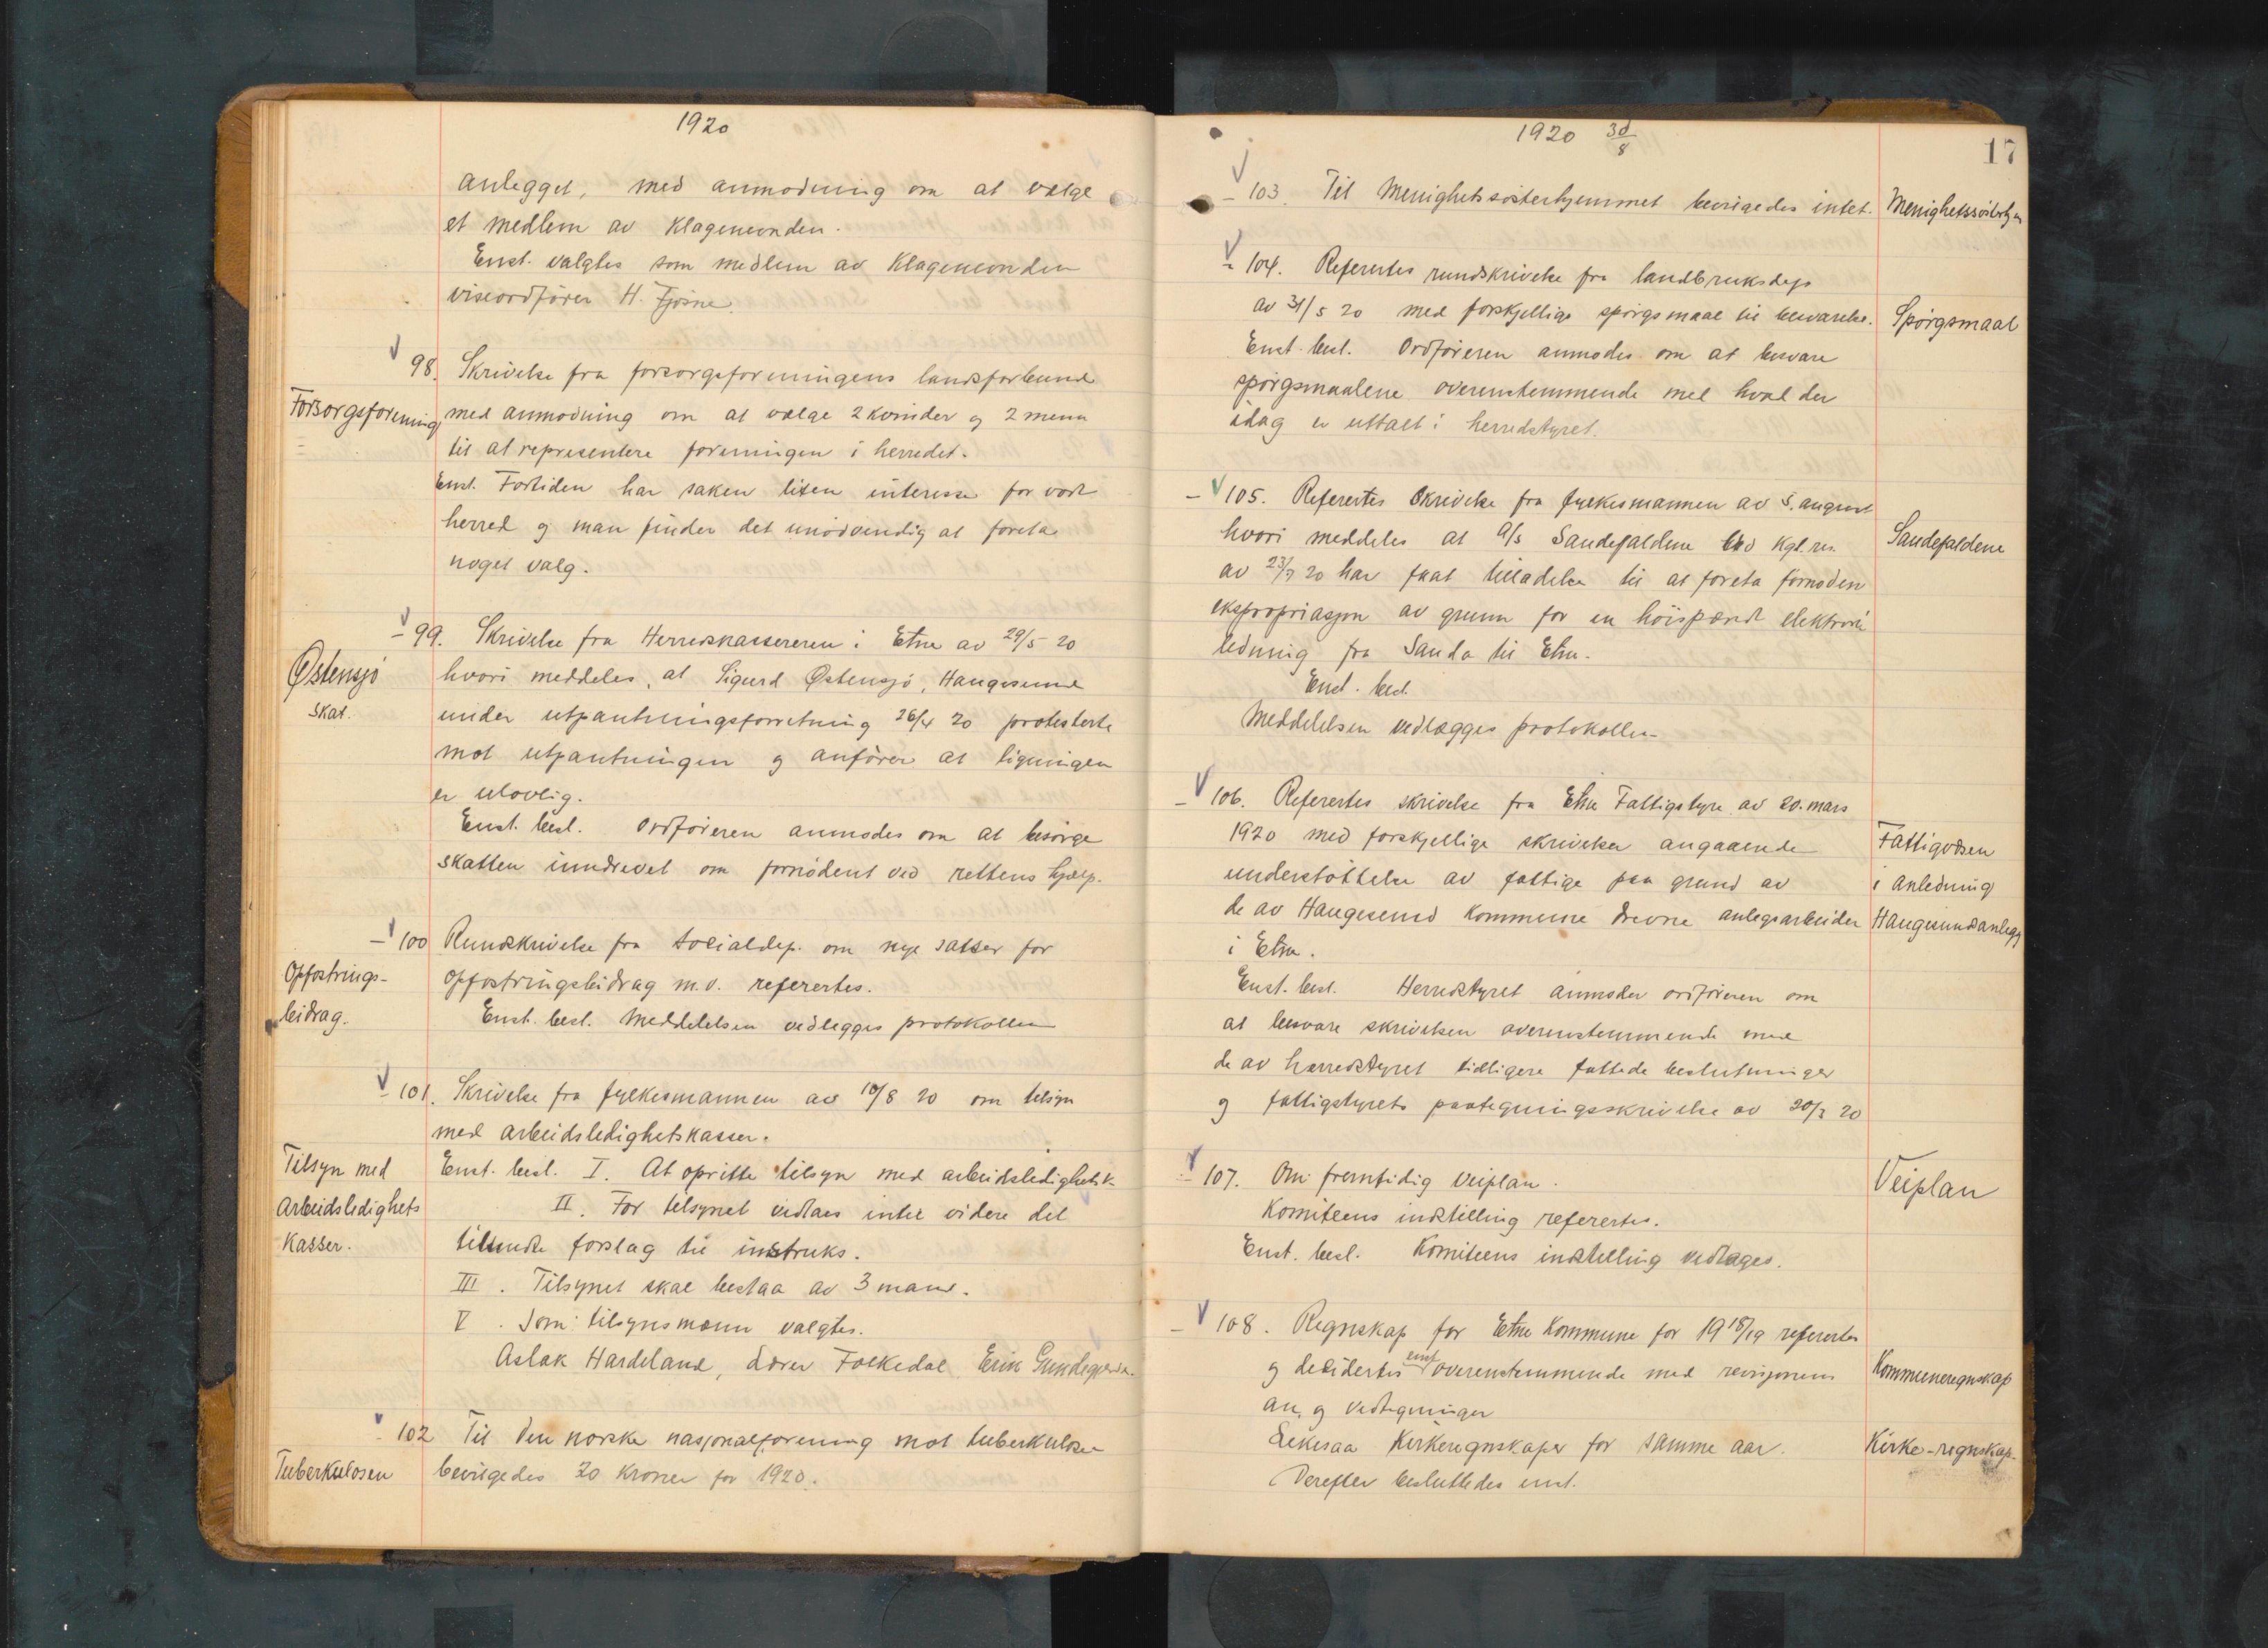 1920
anlegget, med anmodning om at vælge
et medlem av Klagenevnden.
Enst. valgtes som medlem av Klagenevnden
viseordförer H. Fjösne.
98. Skrivelse fra forsorgsforeningens landsforbund
Forsorgsforening
med anmodning om at vælge 2 kvinder og 2 menn
til at representere foreningen i herredet.
Enst. Fortiden har saken liten interesse for vort
herred og man finder det unödvendig at foreta
noget valg.
- 99. Skrivelse fra Herredskassereren i Etne av 29/5 20
Østensjö
skat.
hvori meddeles, at Sigurd Østensjö, Haugesund
under utpantningsforretning 26/4 20 protesterte
mot utpantningen og anförer at ligningen
er ulovlig.
Enst. besl. Ordföreren anmodes om at besörge
skatten inndrevet om fornödent ved rettens hjælp.
- 100 Rundskrivelse fra Socialdep. om nye satser for
Opfostrings-
bidrag.
opfostringsbidrag m.v. referertes.
Enst. besl. Meddelelsen vedlegges protokollen
- 101. Skrivelse fra fylkesmannen av 10/8 20 om tilsyn
med arbeidsledighetskasser.
Tilsyn med
Arbeidsledighets
Kasser.
Enst. besl. I. At oprette tilsyn med arbeidsledighetsk.
II. For tilsynet vedtaes inntil videre det
tilsendte forslag til instruks.
III. Tilsynet skal bestaa av 3 mand.
V. Som tilsynsmænn valgtes.
Aslak Hardeland, Lærer Folkedal, Erik
- 102 Til Den norske nasjonalforening mot tuberkulosen
Tuberkulosen
bevilgedes 20 kroner for 1920.
1920 30/8
17
- 103. Til Menighetssösterhjemmet bevilgedes intet.
Menighetssösterhjem
- 104. Referertes rundskrivelse fra landbruksdep
av 31/5 20 med forskjellige spörgsmaal til besvarelse.
Spörgsmaal
Enst. besl. Ordföreren anmodes om at besvare
spörgsmaalene overenstemmende med hvad der
idag er uttalt i herredstyret.
- 105. Referertes skrivelse fra fylkesmannen av 5. august
hvori meddeles at A/s Saudefaldene ved Kgl. res.
Saudefaldene
av 23/7 20 har faat tilladelse til at foreta fornöden
ekspropriasjon av grunn for en höispændt elektrisk
ledning fra Sauda til Etne.
Enst. besl.
Meddelelsen vedlægges protokollen
- 106. Referertes skrivelse fra Etne Fattigstyre av 20. mars
1920 med forskjellige skrivelser angaaende
understöttelse av fattige paa grund av
de av Haugesund Kommune drevne anlegsarbeider
i Etne.
Fattigvæsen
i anledning
Haugesundsanlegg
Enst. besl. Herredstyret anmoder ordföreren om
at besvare skrivelsen overenstemmende med
de av herredstyret tidligere fattede beslutninger
og fattigstyrets paategningsskrivelse av 20/3 20
- 107. Om fremtidig veiplan.
Veiplan
Komiteens indstilling referertes.
Enst. besl. Komiteens indstilling vedtages.
- 108. Regnskap for Etne Kommune for 1918/19 referertes
og decidertes enst overenstemmende med revisjonens
Kommuneregnskap
an. og vedtegninger
Likesaa Kirkeregnskaper for samme aar.
Kirke-regnskap.
Derefter besluttedes enst.